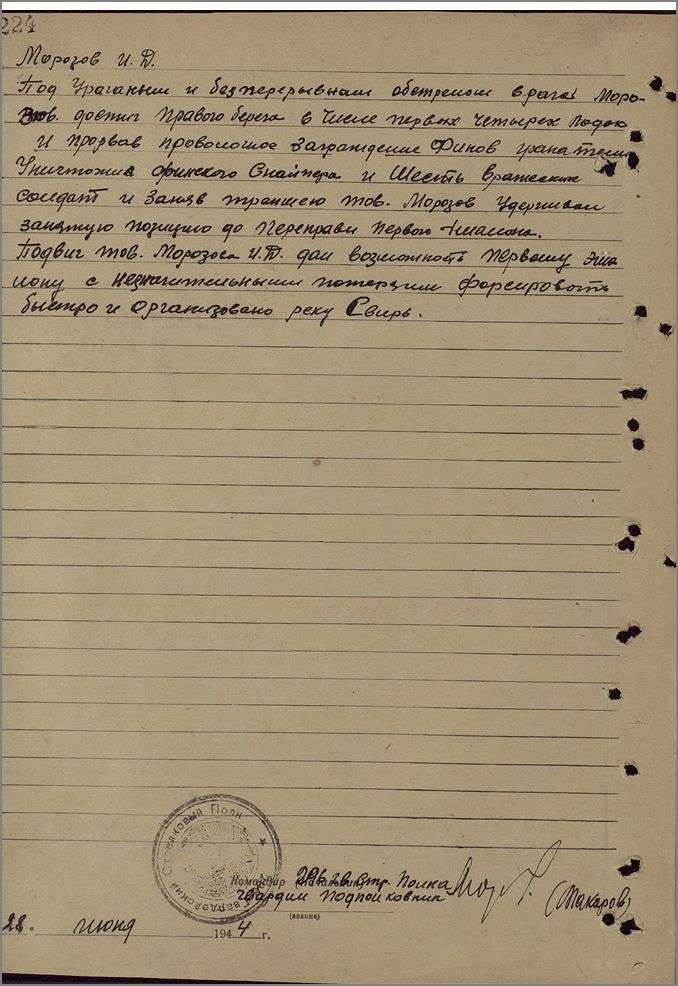 224
Морозов И.Д.
Под Ураганым и безперерывным обстрелом врага Моро-
зов. достиг Правого берега в числе первых четырех лодок
И прорвав проволочное заграждение Финов гранатами
Уничтожив финского Снайпера и Шесть вражеских
солдат и Заняв траншею тов. Морозов Удерживал
занятую позицию до Переправы Первого эшалона.
Подвиг тов. Морозова И.Д. дал возможность Первому эша
лону с незначительными потерями форсировать
быстро и Организовано реку Свирь.
Гвардейский Стрелковый Полк
Командир (Начальник) гв. стр. Полка
Гвардии Подполковник (Макаров)
(звание)
28. Июня 1944 г.